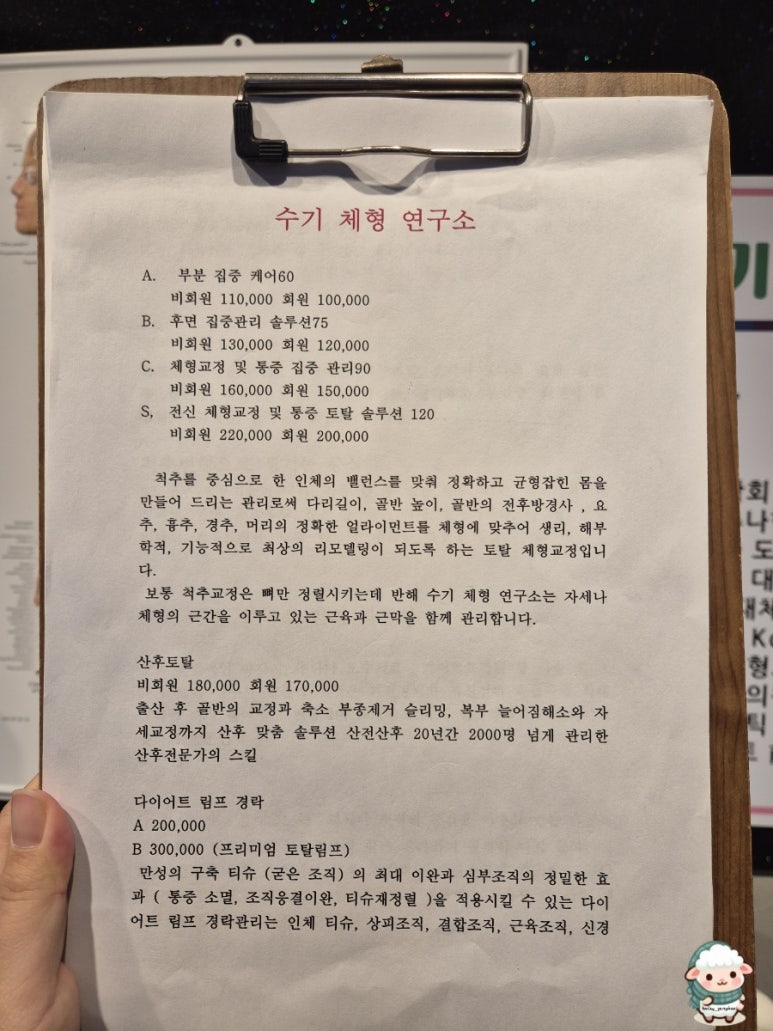 수기 체형 연구소
A. 부분 집중 케어60
비회원 110,000 회원 100,000
B. 후면 집중관리 솔루션75
비회원 130,000 회원 120,000
C. 체형교정 및 통증 집중 관리90
비회원 160,000 회원 150,000
S, 전신 체형교정 및 통증 토탈 솔루션 120
비회원 220,000 회원 200,000
척추를 중심으로 한 인체의 밸런스를 맞춰 정확하고 균형잡힌 몸을
만들어 드리는 관리로써 다리길이, 골반 높이, 골반의 전후방경사 , 요
추, 흉추, 경추, 머리의 정확한 얼라이먼트를 체형에 맞추어 생리, 해부
학적, 기능적으로 최상의 리모델링이 되도록 하는 토탈 체형교정입니
다.
보통 척추교정은 뼈만 정렬시키는데 반해 수기 체형 연구소는 자세나
체형의 근간을 이루고 있는 근육과 근막을 함께 관리합니다.
산후토탈
비회원 180,000 회원 170,000
출산 후 골반의 교정과 축소 부종제거 슬리밍, 복부 늘어짐해소와 자
세교정까지 산후 맞춤 솔루션 산전산후 20년간 2000명 넘게 관리한
산후전문가의 스킬
다이어트 림프 경락
A 200,000
B 300,000 (프리미엄 토탈림프)
만성의 구축 티슈 (굳은 조직) 의 최대 이완과 심부조직의 정밀한 효
과 ( 통증 소멸, 조직응결이완, 티슈재정렬 )을 적용시킬 수 있는 다이
어트 림프 경락관리는 인체 티슈, 상피조직, 결합조직, 근육조직, 신경
기